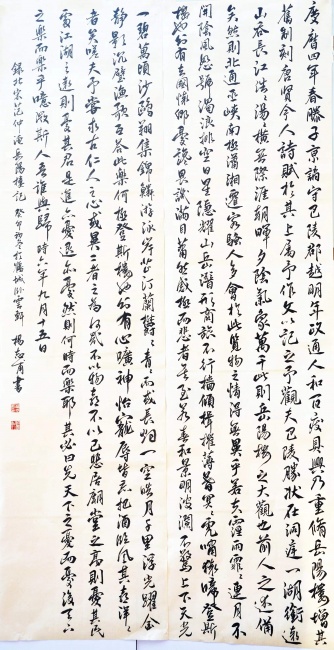 慶曆四年春滕子京謫守巴陵郡越明年政通人和百廢具興乃重脩岳陽樓增其
舊制刻唐賢今人詩賦於其上屬予作文以記之予觀夫巴陵勝狀在洞庭一湖銜遠
山吞長江浩浩湯湯橫無際涯朝暉夕陰氣象萬千此則岳陽樓之大觀也前人之述備
矣然則北通巫峽南極瀟湘遷客騷人多會於此覽物之情得無異乎若夫霪雨霏霏連月不
開陰風怒號濁浪排空日星隱耀山岳潛形商旅不行檣傾楫摧薄暮冥冥虎嘯猿啼登斯
樓也則有去國懷鄉憂讒畏譏滿目蕭然感極而悲者矣至若春和景明波瀾不驚上下天光
一碧萬頃沙鷗翔集錦鱗游泳岸芷汀蘭郁郁青青而或長煙一空皓月千里浮光躍金
靜影沉璧漁歌互答此樂何極登斯樓也則有心曠神怡寵辱皆忘把酒臨風其喜洋洋
者矣嗟夫予嘗求古仁人之心或異二者之為何哉不以物喜不以己悲居廟堂之高則憂其民
處江湖之遠則憂其君是進亦憂退亦憂然則何時而樂耶其必曰先天下之憂而憂後天下
之樂而樂乎噫微斯人吾誰與歸時六年九月十五日
錄北宋范仲淹岳陽樓記 癸卯初冬於鶴城卧雲軒 楊書